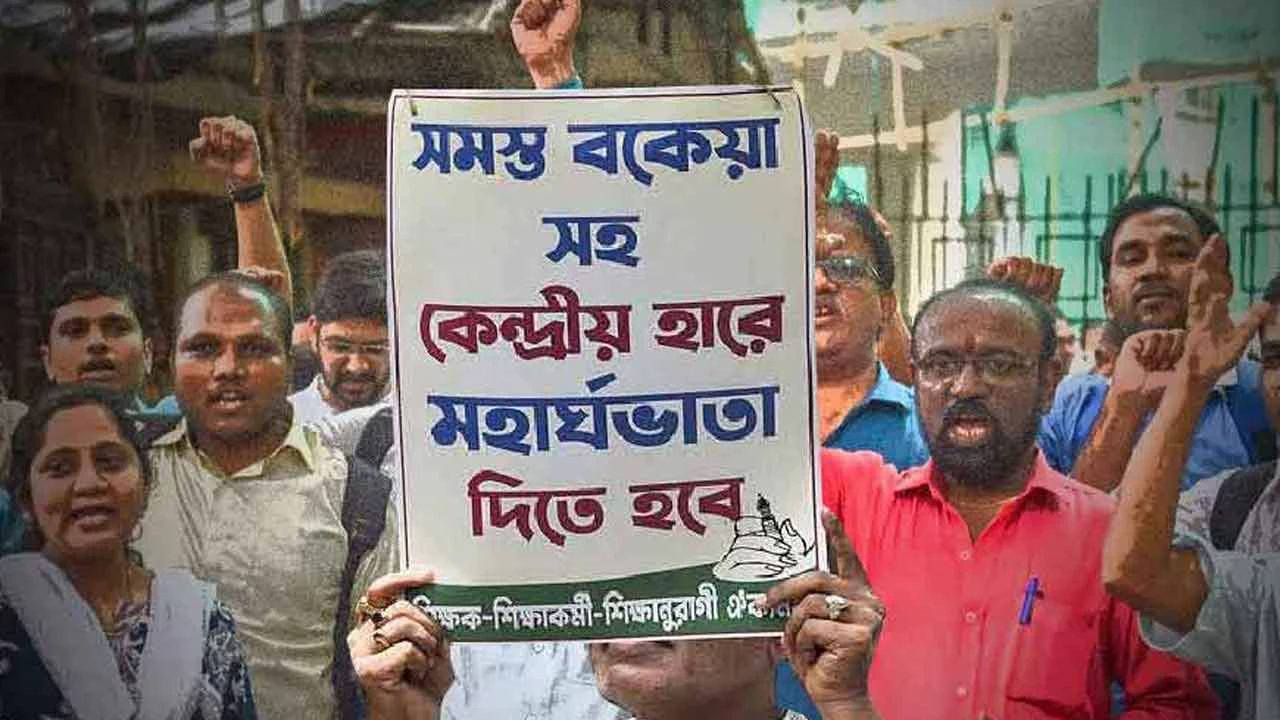 সমস্ত বকেয়া
সহ
কেন্দ্রীয় হারে
মহার্ঘভাতা
দিতে হবে
শিক্ষক-শিক্ষাকর্মী-শিক্ষানুরাগী